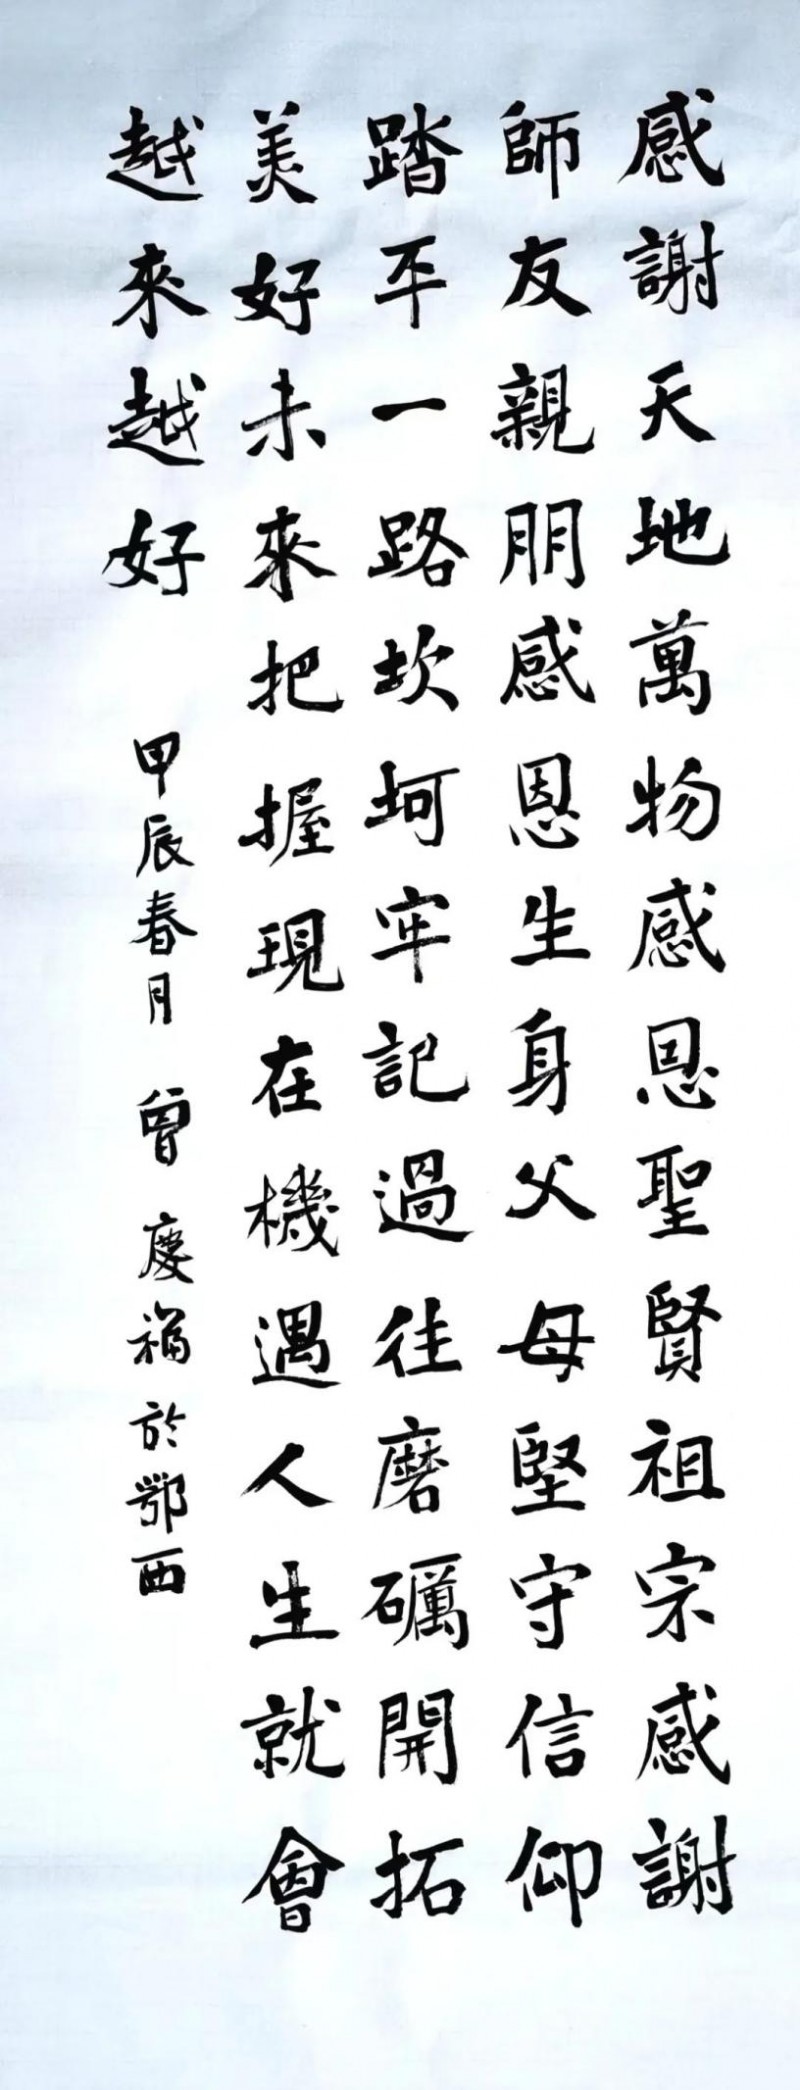 感謝天地萬物感恩聖賢祖宗感謝
師友親朋感恩生身父母堅守信仰
踏平一路坎坷牢記過往磨礪開拓
美好未來把握現在機遇人生就會
越來越好
甲辰春月 曾慶福於鄂西